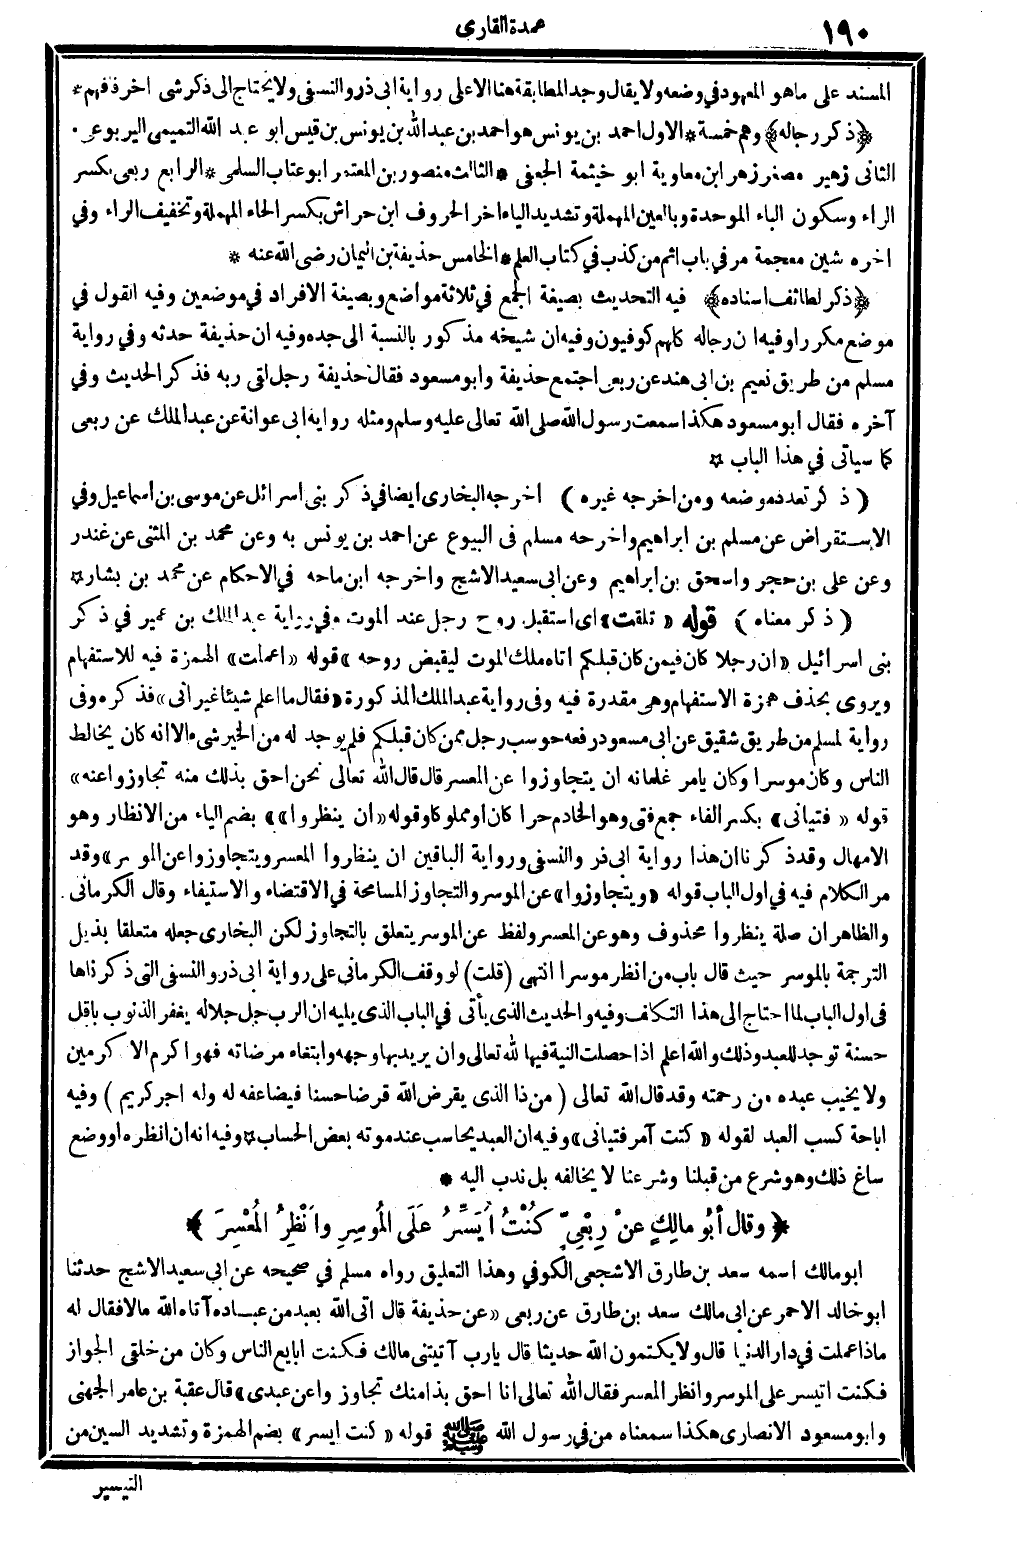 ١٩٠
عمدة القارى
المسند على ماهو المعهود في وضعه ولا يقال وجد المطابقة هنا الا على رواية ابى ذر والنسفى ولا يحتاج الى ذكر شى اخر فافهم *
﴿ ذكر رجاله ﴾ وهم خمسة * الاول احمد بن يونس هو احمد بن عبد الله بن يونس بن قيس ابو عبد الله التميمى اليربوعى ٠
الثانى زهير مصغر زهر ابن معاوية ابو خيثمة الجعفى * الثالث منصور بن المعتمر ابو عتاب السلمى * الرابع ربعى بكسر
الراء وسكون الباء الموحدة وبالعين المهملة وتشديد الياء اخر الحروف ابن حراش بكسر الحاء المهملة وتخفيف الراء وفي
اخره شين معجمة مر في باب اثم من كذب في كتاب العلم * الخامس حذيفة بن اليمان رضى الله عنه *
﴿ ذكر لطائف اسناده ﴾ فيه التحديث بصيغة الجمع في ثلاثة مواضع وبصيغة الافراد في موضعين وفيه القول في
موضع مكررا وفيه ان رجاله كلهم كوفيون وفيه ان شيخه مذكور بالنسبة الى جده وفيه ان حذيفة حدثه وفي رواية
مسلم من طريق نعيم بن ابى هند عن ربعى اجتمع حذيفة وابو مسعود فقال حذيفة رجل اتى ربه فذكر الحديث وفي
آخره فقال ابو مسعود هكذا سمعت رسول الله صلى الله تعالى عليه وسلم ومثله رواية ابى عوانة عن عبد الملك عن ربعى
كما سياتى في هذا الباب ☆
( ذكر تعدد موضعه ومن اخرجه غيره ) اخرجه البخارى ايضا في ذكر بنى اسرائل عن موسى بن اسماعيل وفي
الاستقراض عن مسلم بن ابراهيم واخرجه مسلم فى البيوع عن احمد بن يونس به وعن محمد بن المثنى عن غندر
وعن على بن حجر واسحق بن ابراهيم وعن ابى سعيد الاشج واخرجه ابن ماجه في الاحكام عن محمد بن بشار ☆
( ذكر معناه ) قوله « تلقت » اى استقبل روح رجل عند الموت وفي رواية عبد الملك بن عمير في ذكر
بنى اسرائيل « ان رجلا كان فيمن كان قبلكم اتاه ملك الموت ليقبض روحه » قوله « اعملت » الهمزة فيه للاستفهام
ويروى بحذف همزة الاستفهام وهى مقدرة فيه وفى رواية عبد الملك المذكورة « فقال ما اعلم شيئا غير انى » فذكره وفى
رواية لمسلم من طريق شقيق عن ابى مسعود رفعه حوسب رجل ممن كان قبلكم فلم يوجد له من الخير شىء الا انه كان يخالط
الناس وكان موسرا وكان يامر غلمانه ان يتجاوزوا عن المعسر قال قال الله تعالى نحن احق بذلك منه تجاوزوا عنه »
قوله « فتيانى » بكسر الفاء جمع فتى وهو الخادم حرا كان او مملوكا وقوله « ان ينظروا » بضم الياء من الانظار وهو
الامهال وقد ذكرنا ان هذا رواية ابى ذر والنسفى ورواية الباقين ان ينظروا المعسر ويتجاوزوا عن الموسر » وقد
مر الكلام فيه في اول الباب قوله « ويتجاوزوا » عن الموسر والتجاوز المسامحة في الاقتضاء والاستيفاء وقال الكرمانى
والظاهر ان صلة ينظروا محذوف وهو عن المعسر ولفظ عن الموسر يتعلق بالتجاوز لكن البخارى جعله متعلقا بذيل
الترجمة بالموسر حيث قال باب من انظر موسرا انتهى (قلت) لو وقف الكرمانى على رواية ابى ذر والنسفى التى ذكرناها
فى اول الباب لما احتاج الى هذا التكلف وفيه والحديث الذى يأتى في الباب الذى يليه ان الرب جل جلاله يغفر الذنوب باقل
حسنة توجد للعبد وذلك والله اعلم اذا حصلت النية فيها لله تعالى وان يريد بها وجهه وابتغاء مرضاته فهو اكرم الاكرمين
ولا يخيب عبده من رحمته وقد قال الله تعالى ( من ذا الذى يقرض الله قرضا حسنا فيضاعفه له وله اجر كريم ) وفيه
اباحة كسب العبد لقوله « كنت آمر فتيانى » وفيه ان العبد يحاسب عند موته بعض الحساب ☆ وفيه انه ان انظره او وضع
ساغ ذلك وهو شرع من قبلنا وشرعنا لا يخالفه بل ندب اليه *
﴿ وقال أبُو مالِكٍ عنْ رِبْعِيٍّ كُنْتُ أيَسِّرُ عَلَى المُوسِرِ وأنْظِرُ المُعْسِرَ ﴾
ابو مالك اسمه سعد بن طارق الاشجعى الكوفي وهذا التعليق رواه مسلم في صحيحه عن ابي سعيد الاشج حدثنا
ابو خالد الاحمر عن ابى مالك سعد بن طارق عن ربعى « عن حذيفة قال اتى الله بعبد من عباده آتاه الله مالا فقال له
ماذا عملت في دار الدنيا قال ولا يكتمون الله حديثا قال يارب آتيتنى مالك فكنت ابايع الناس وكان من خلقى الجواز
فكنت اتيسر على الموسر وانظر المعسر فقال الله تعالى انا احق بذا منك تجاوزوا عن عبدى » قال عقبة بن عامر الجهنى
وابو مسعود الانصارى هكذا سمعناه من في رسول الله ﷺ قوله « كنت ايسر » بضم الهمزة وتشديد السين من
التيسير